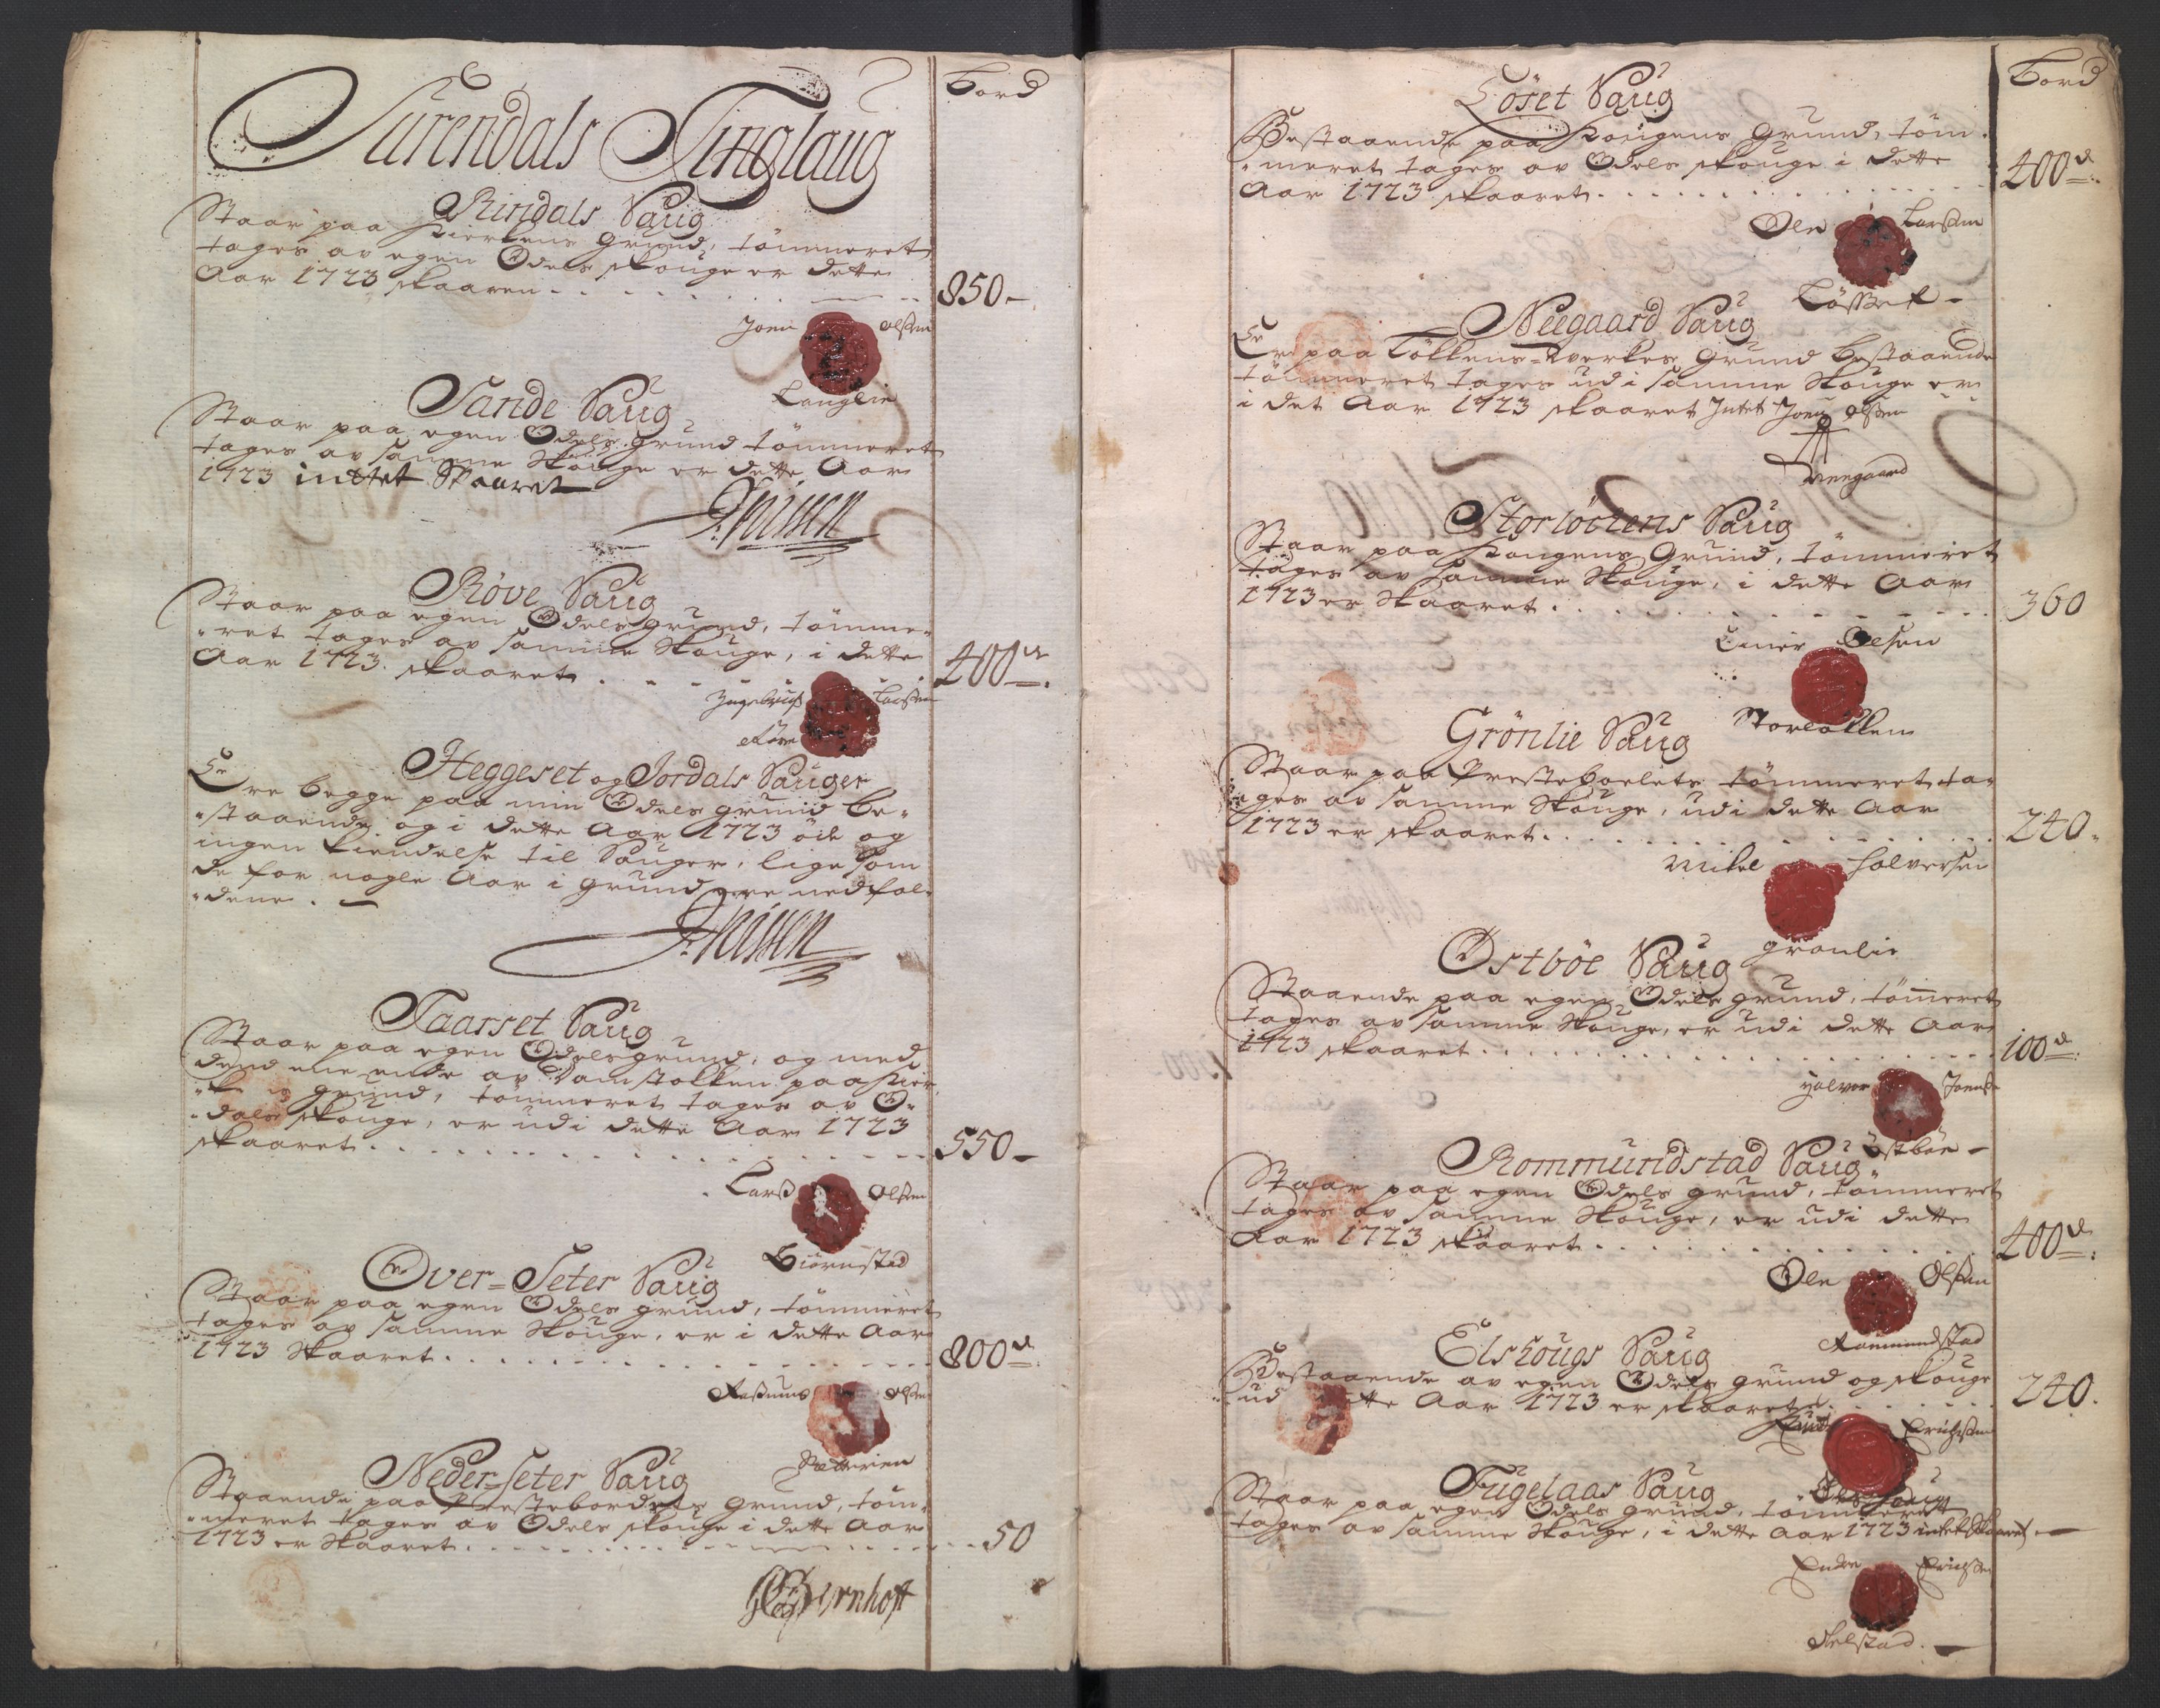 Surendals Tinglaug
Bord
Rindals Saug
Staar paa Kierkens grund, tømmeret
tages av egen Odels skouge er dette
Aar 1723 skaaren 850
Joen Olsen
Langlie
Sande Saug
Staar paa egen Odels grund tømmeret
tages av samme Skouge er dette Aar
1723 inttet Skaaret
Røve Saug
Staar paa egen Odels grund, tømme-
ret tages av samme Skouge, i dette
Aar 1723. skaaret 400
Ingebrigt Larsen
Røve
Heggeset og Jordals Sauger
Ere begge paa min Odels grund be-
staaende og i dette Aar 1723 øde og
ingen kiendelse til Sauger, lige som
de for nogle Aar i grund ere nedfal-
dene.
Taarset Saug
Staar paa egen Odelsgrund, og med
dend ene ende av Damstokken paa
grund, tømmeret tages av O-
dels skouge, er udi dette Aar 1723
skaaret 550
Lars Olsen
Biørnstad
Over-Seter Saug
Staar paa egen Odels grund, tømmeret
tages av samme Skouge, er i dette Aar
1723 Skaaret 800
Rasmus Olsen
Neder-seter Saug
Staaende paa Prestebordets grund, tøm-
meret tages av Odels skouge i dette Aar
1723 er Skaaret 50
Bernhoft
Bord
Løset Saug
Bestaaende paa Kongens grund, tøm-
meret tages av Odels skouge i dette
Aar 1723 skaaret 400
Ole Larsen
Løset
Neegaard Saug
Er paa Løkkens-Verkes grund bestaaende
tømmeret tages udi samme Skouge er
i det Aar 1723 skaaret Intet Joen Olsen
Neegaard
Storløckens Saug
Staar paa Kongens Grund, tømmeret
tages av samme Skouge, i dette Aar
1723 er Skaaret 360
Einer Olsen
Storløkken
Grønlie Saug
Staar paa Presteboelets tømmeret ta-
ges av samme Skouge, udi dette Aar
1723 er skaaret 240
Mikel Halversen
grønlie
Østbøe Saug
Staaende paa egen Odels grund, tømeret
tages av samme Skouge, er udi dette Aar
1723 skaaret 100
Halvor Joens
Østbøe
Rommundstad Saug
Staar paa egen Odels grund, tømmeret
tages av samme Skouge, er udi dette
Aar 1723 skaaret 400
Ole Olsen
Rommundstad
Elshougs Saug
Bestaaende av egen Odels grund og skouge
ud dette Aar 1723 er skaaret 240
Knut Erichsen
Elshoug
Fugelaas Saug
Staar paa egen Odels grund, tømmeret
tages av samme Skouge, i dette Aar 1723 intet Skaaret
Ender Erichsen